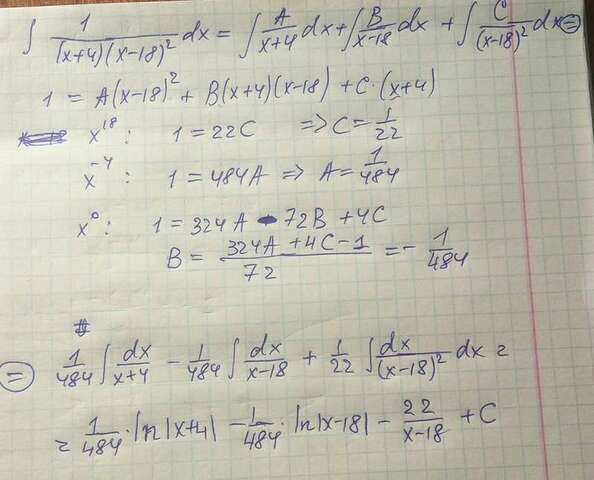 ∫ 1/((x+4)(x-18)²) dx = ∫ A/(x+4) dx + ∫ B/(x-18) dx + ∫ C/(x-18)² dx =
1 = A(x-18)² + B(x+4)(x-18) + C·(x+4)
x¹⁸: 1 = 22C => C = 1/22
x⁻⁴: 1 = 484A => A = 1/484
x⁰: 1 = 324A - 72B + 4C
B = (324A + 4C - 1)/72 = - 1/484
= 1/484 ∫ dx/(x+4) - 1/484 ∫ dx/(x-18) + 1/22 ∫ dx/(x-18)² dx =
= 1/484 · ln|x+4| - 1/484 · ln|x-18| - 22/(x-18) + C